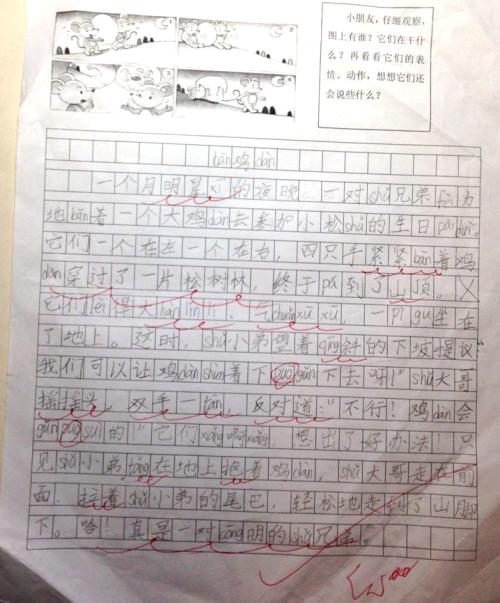 小朋友，仔细观察，
图上有谁？它们在干什
么？再看看它们的表
情、动作，想想它们还
会说些什么？
1
2
3
4
bān鸡dàn
一个月明星xī的夜晚，一对shǔ兄弟
地bān着一个大鸡dàn去参加小松shǔ的生日pāiduì。
它们一个在左一个在右，四只手紧紧bān着鸡
dàn穿过了一片松树林，终于pá到了山顶。
它们lèi得大hàn lín lí，气chuǎnxūxū，一pì gu坐在
了地上。这时，shǔ小弟望着qīng斜的下坡提议
我们可以让鸡dàn shùn着下pō gǔn下去呀！”shǔ大哥
摇摇头，双手一tān，反对道：“不行！鸡dàn会
gǔn suì的！”它们xiǎng啊xiǎng，想出了好办法！只
见shǔ小弟tǎng在地上抱着鸡dàn，shǔ大哥走在前
面，拉着shǔ小弟的尾巴，轻松地走到了山脚
下。哈！真是一对cōng明的shǔ兄弟。